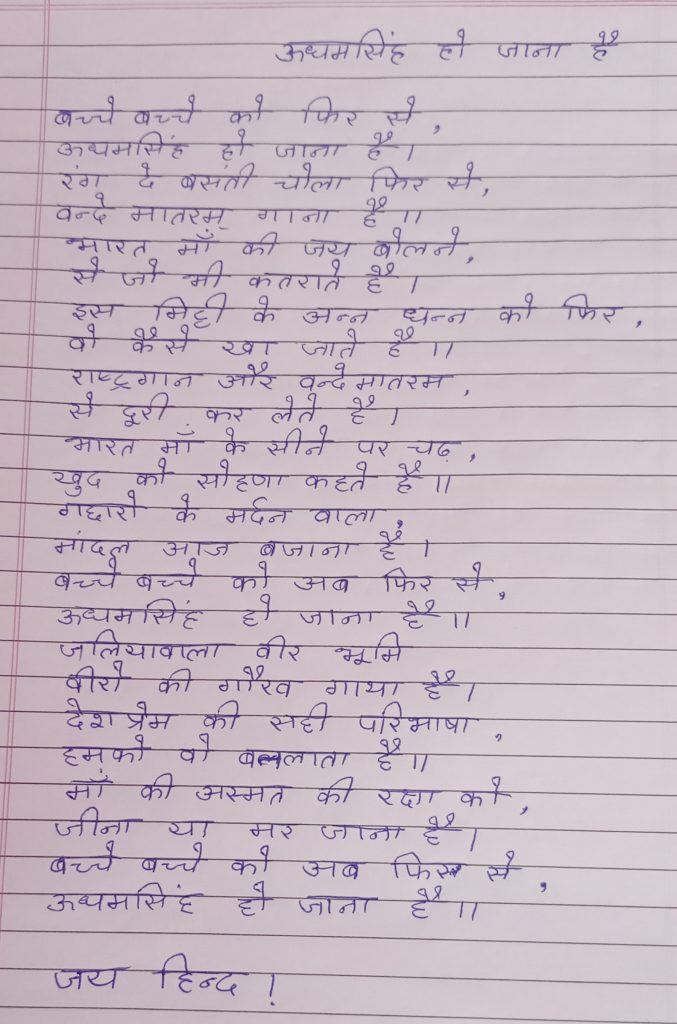 ऊधमसिंह हो जाना है
बच्चे बच्चे को फिर से,
ऊधमसिंह हो जाना है।
रंग दे बसंती चोला फिर से,
वन्दे मातरम् गाना है॥
भारत माँ की जय बोलने,
से जो भी कतराते है।
इस मिट्टी के अन्न धन्न को फिर,
वो कैसे खा जाते है॥
राष्ट्रगान और वन्देमातरम,
से दूरी कर लेते है।
भारत माँ के सीने पर चढ़,
खुद को सोहणा कहते है॥
गद्दारो के मर्दन वाला,
मांदल आज बजाना है।
बच्चे बच्चे को अब फिर से,
ऊधमसिंह हो जाना है॥
जलियावाला वीर भूमि
वीरो की गौरव गाथा है।
देशप्रेम की सही परिभाषा,
हमको वो बतलाता है॥
माँ की अस्मत की रक्षा को,
जीना या मर जाना है।
बच्चे बच्चे को अब फिर से,
ऊधमसिंह हो जाना है॥
जय हिन्द !